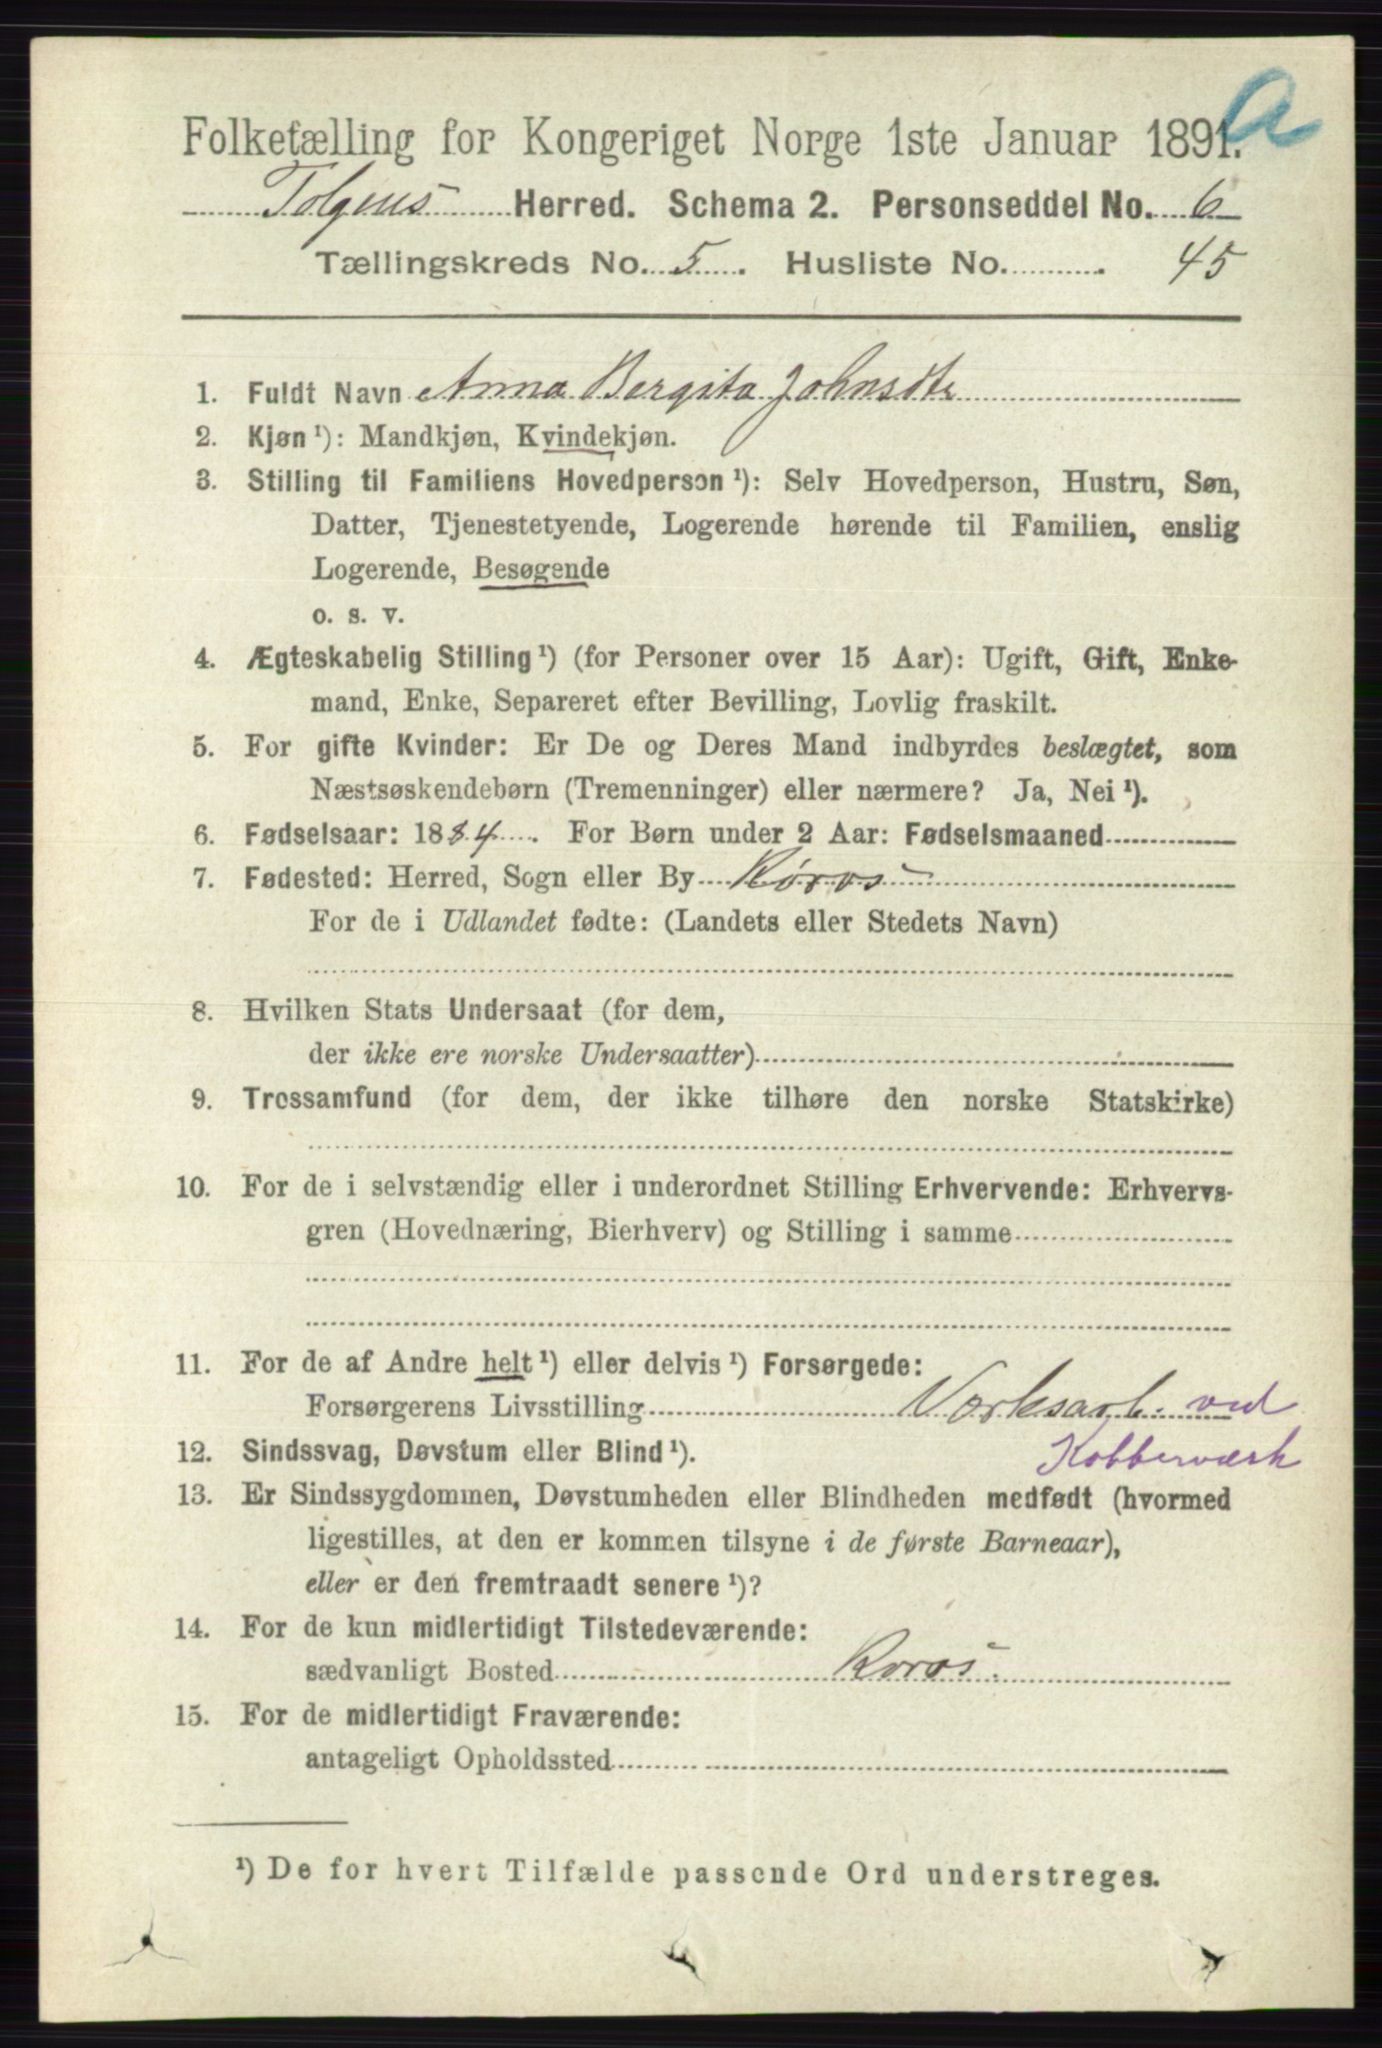 a
Folketælling for Kongeriget Norge 1ste Januar 1891.
Tolgens Herred. Schema 2. Personseddel No. 6
Tællingskreds No. 5. Husliste No. 45
1. Fuldt Navn Anna Bergita Johnsdtr
2. Kjøn ¹): Mandkjøn, Kvindekjøn.
3. Stilling til Familiens Hovedperson ¹): Selv Hovedperson, Hustru, Søn,
Datter, Tjenestetyende, Logerende hørende til Familien, enslig
Logerende, Besøgende
o. s. v.
4. Ægteskabelig Stilling ¹) (for Personer over 15 Aar): Ugift, Gift, Enke-
mand, Enke, Separeret efter Bevilling, Lovlig fraskilt.
5. For gifte Kvinder: Er De og Deres Mand indbyrdes beslægtet, som
Næstsøskendebørn (Tremenninger) eller nærmere? Ja, Nei ¹).
6. Fødselsaar: 1884. For Børn under 2 Aar: Fødselsmaaned
7. Fødested: Herred, Sogn eller By Røros
For de i Udlandet fødte: (Landets eller Stedets Navn)
8. Hvilken Stats Undersaat (for dem,
der ikke ere norske Undersaatter)
9. Trossamfund (for dem, der ikke tilhøre den norske Statskirke)
10. For de i selvstændig eller i underordnet Stilling Erhvervende: Erhvervs-
gren (Hovednæring, Bierhverv) og Stilling i samme
11. For de af Andre helt ¹) eller delvis ¹) Forsørgede:
Forsørgerens Livsstilling Værksarb. ved
Kobberværk
12. Sindssvag, Døvstum eller Blind ¹).
13. Er Sindssygdommen, Døvstumheden eller Blindheden medfødt (hvormed
ligestilles, at den er kommen tilsyne i de første Barneaar),
eller er den fremtraadt senere ¹)?
14. For de kun midlertidigt Tilstedeværende:
sædvanligt Bosted Røros.
15. For de midlertidigt Fraværende:
antageligt Opholdssted
¹) De for hvert Tilfælde passende Ord understreges.